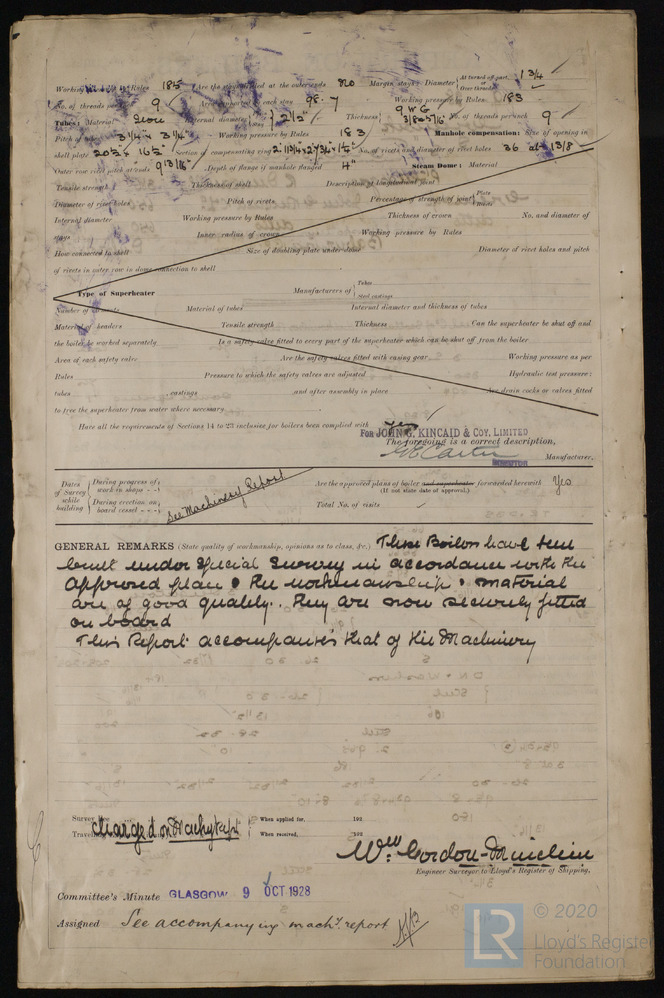 Working pressure by Rules 185 Are the stays drilled at the outer ends no Margin stays: Diameter { At turned off part, or Over threads 1 3/4
No. of threads per 9 Area supported by each stay 98.7 Working pressure by Rules 183
Tubes: Material Iron External diameter 2 1/2" Thickness 9 W G 3/8 & 5/16" No. of threads per inch 9
Pitch of tubes 3 3/4" x 3 3/4" Working pressure by Rules 183 Manhole compensation: Size of opening in
shell plate 20 1/2" x 16 1/2" Section of compensating ring No. of rivets and diameter of rivet holes 36 at 1 3/8
Outer row rivet pitch at ends 9 13/16" Depth of flange if manhole flanged 4" Steam Dome: Material
Tensile strength Thickness of shell Description of longitudinal joint
Diameter of rivet holes Pitch of rivets Percentage of strength of joint { Plate
Internal diameter Working pressure by Rules Thickness of crown No. and diameter of
stays Inner radius of crown Working pressure by Rules
How connected to shell Size of doubling plate under dome Diameter of rivet holes and pitch
of rivets in outer row in dome connection to shell
Type of Superheater Manufacturers of { Tubes Steel castings
Number of elements Material of tubes Internal diameter and thickness of tubes
Material of headers Tensile strength Thickness Can the superheater be shut off and
the boiler be worked separately Is a safety valve fitted to every part of the superheater which can be shut off from the boiler
Area of each safety valve Are the safety valves fitted with easing gear Working pressure as per
Rules Pressure to which the safety valves are adjusted Hydraulic test pressure:
tubes castings and after assembly in place Are drain cocks or valves fitted
to free the superheater from water where necessary
Have all the requirements of Sections 14 to 23 inclusive for boilers been complied with Yes
For JOHN G. KINCAID & COY, LIMITED
The foregoing is a correct description,
Manufacturer.
Dates of Survey while building { During progress of work in shops - - During erection on board vessel - - - See Machinery Report
Are the approved plans of boiler and superheater forwarded herewith Yes
(If not state date of approval.)
Total No. of visits
GENERAL REMARKS (State quality of workmanship, opinions as to class, &c.) These Boilers have been
built under Special Survey in accordance with the
approved plan & the workmanship & material
are of good quality. They are now securely fitted
on board
This Report accompanies that of the Machinery
Survey
Charged on Machy Rept
When applied for, 192
When received, 192
Wm Gordon-Maclean
Engineer Surveyor to Lloyd's Register of Shipping.
Committee's Minute GLASGOW 9 OCT 1928
Assigned See accompanying machy. report
LR © 2020
Lloyd's Register
Foundation